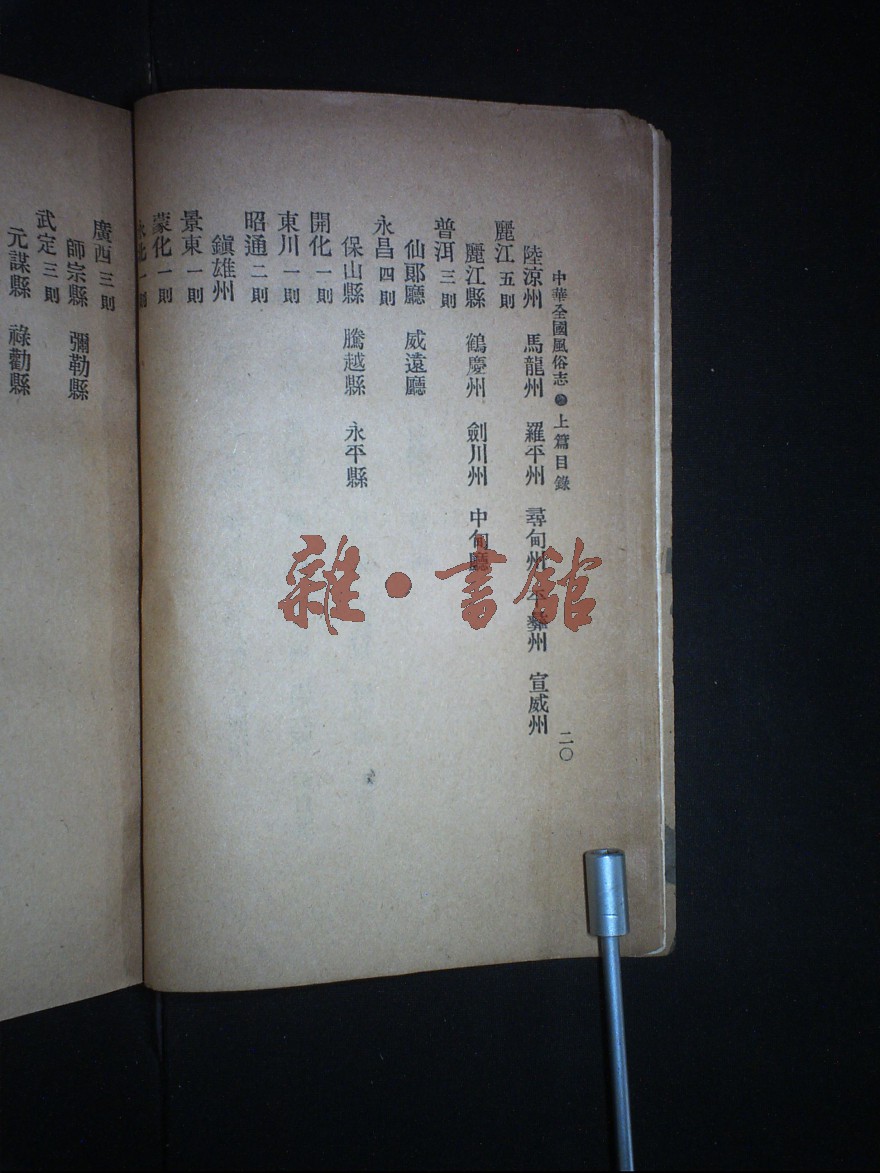 中華全國風俗志 上篇目錄 二〇
陸涼州 馬龍州 羅平州 尋甸州 平彝州 宣威州
麗江 五則
麗江縣 鶴慶州 劍川州 中甸廳
普洱 三則
仙郞廳 威遠廳
永昌 四則
保山縣 騰越縣 永平縣
開化 一則
東川 一則
昭通 二則
鎭雄州
景東 一則
蒙化 一則
永北 一則
廣西 三則
師宗縣 彌勒縣
武定 三則
元謀縣 祿勸縣
雜·書館